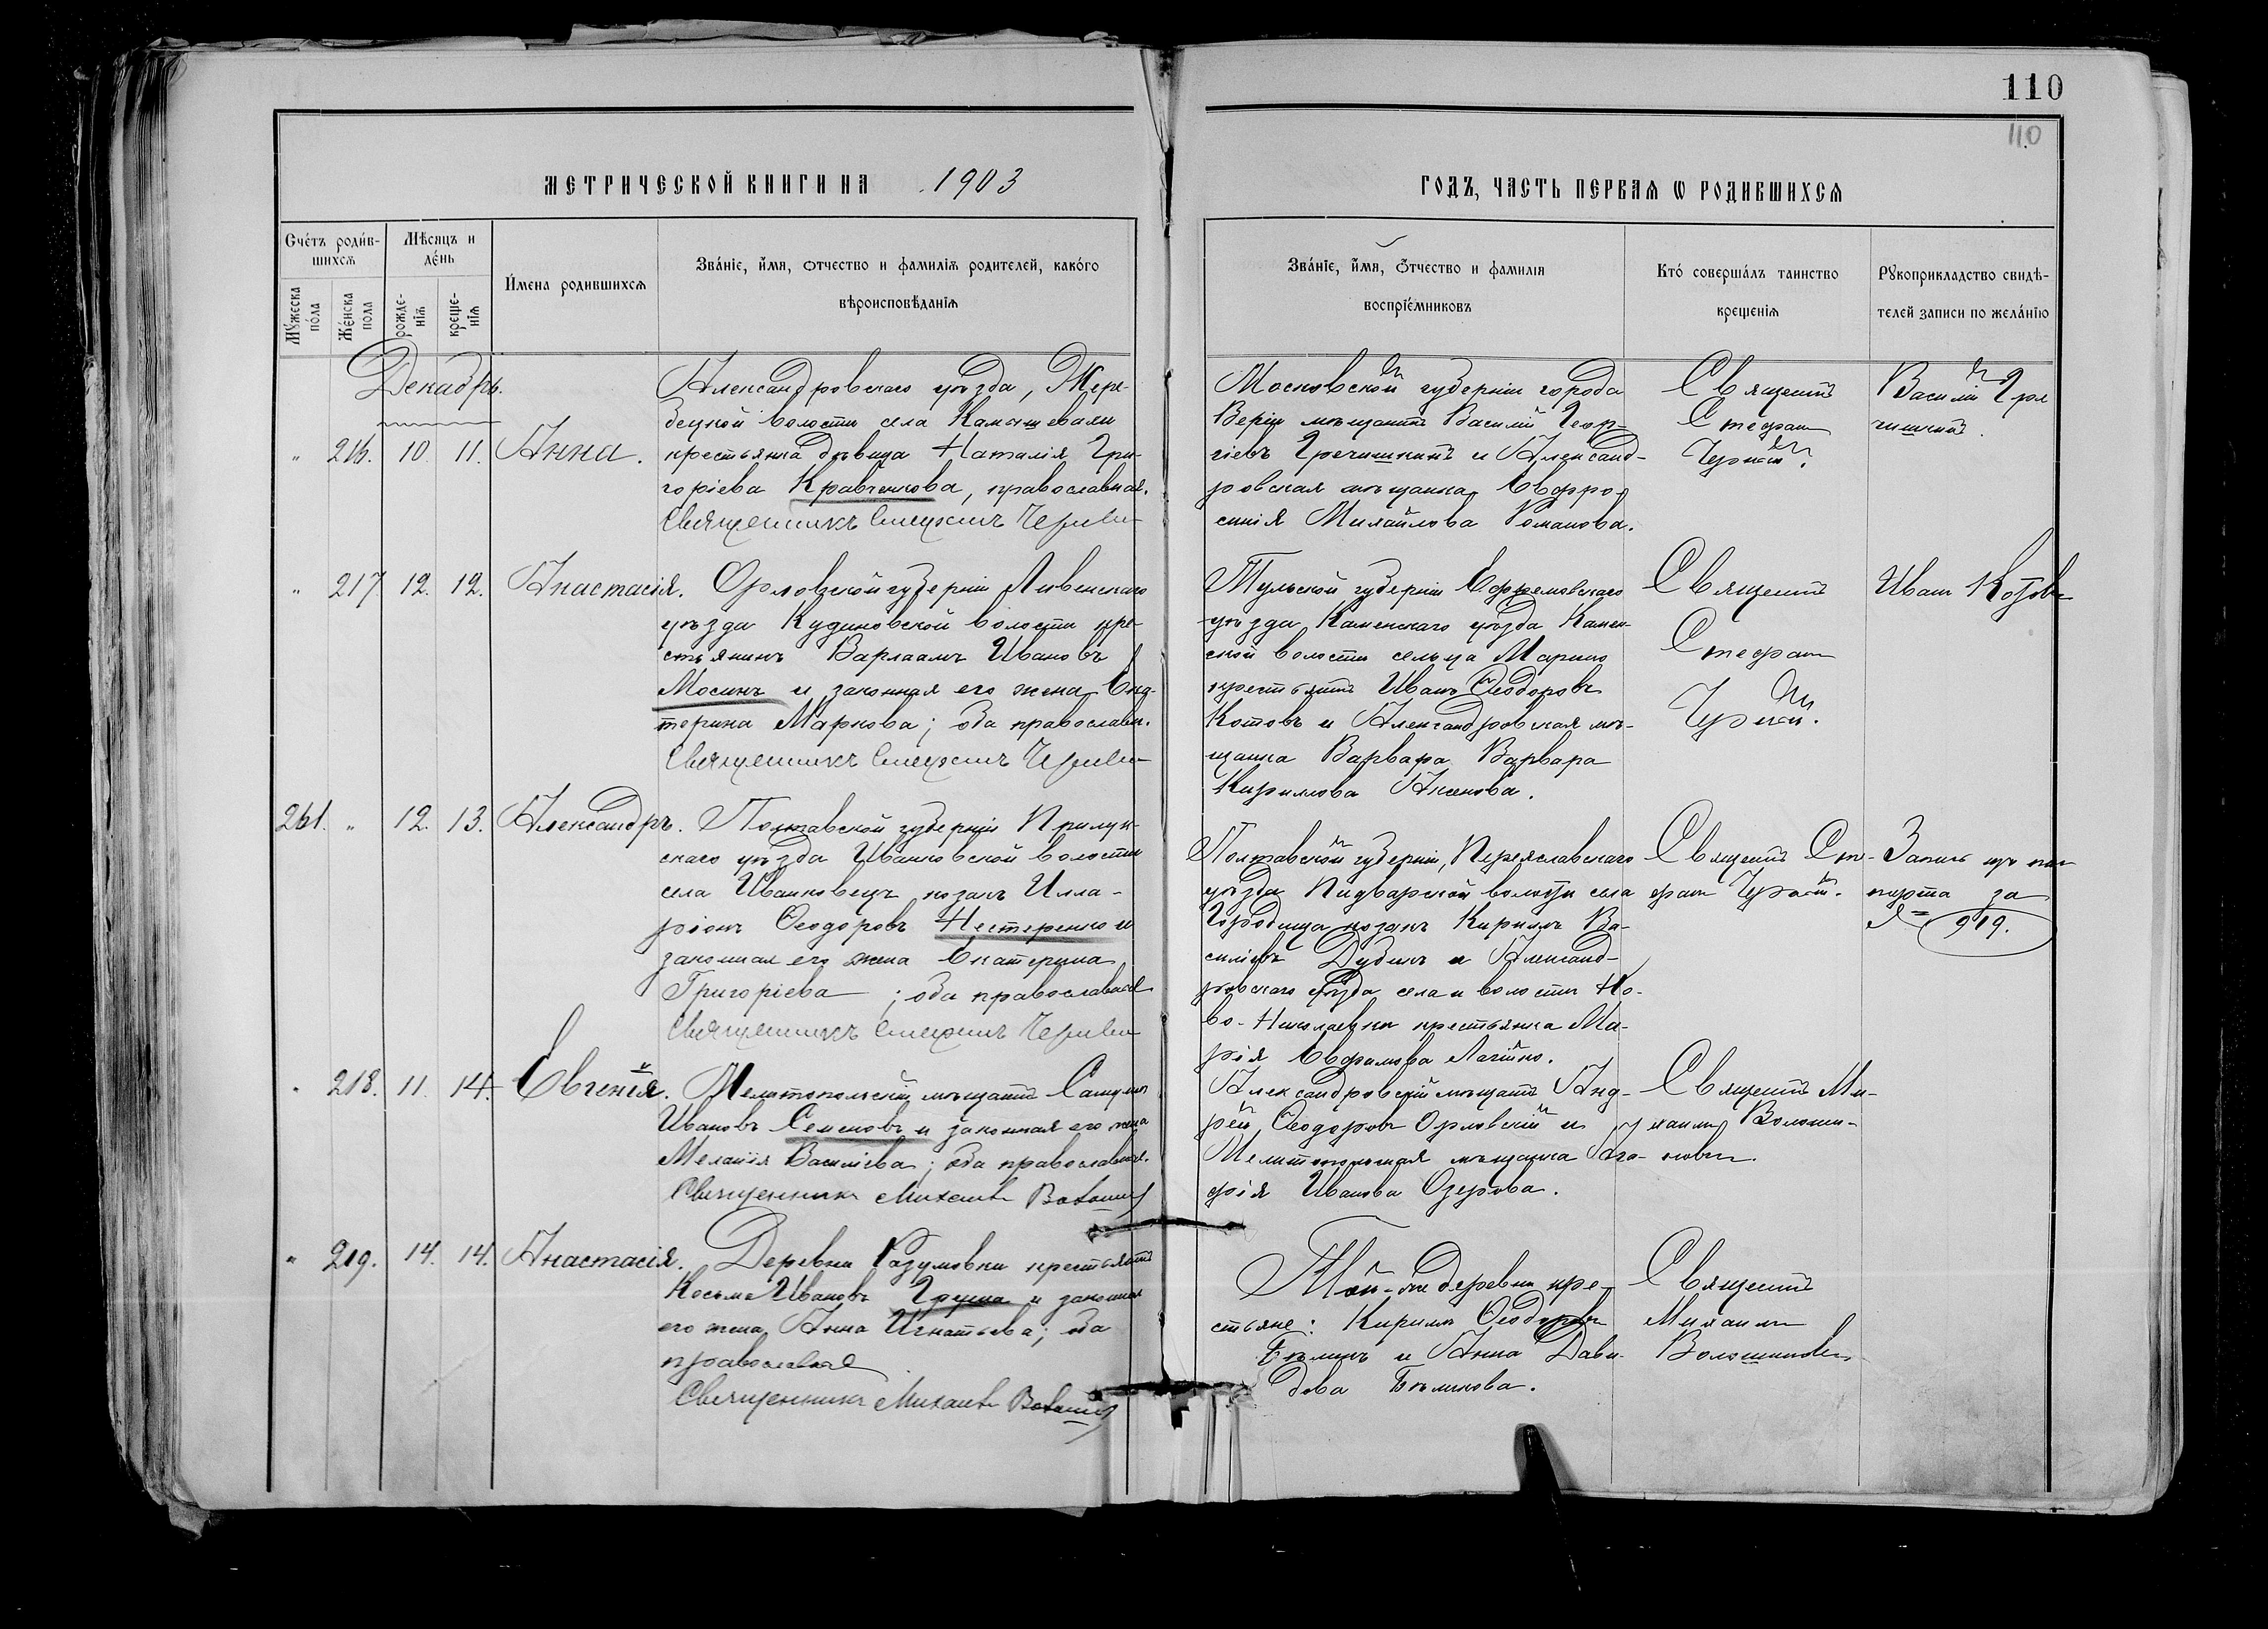 110
110
МЕТРИЧЕСКОЙ КНИГИ НА 1903
ГОДЪ, ЧАСТЬ ПЕРВАЯ Ѡ РОДИВШИХСЯ
Счетъ родив-
шихся
Мѣсяцъ и
день
Имена родившихся
Званіе, имя, отчество и фамилія родителей, какого
вѣроисповѣданія
Мужеска
пола
Женска
пола
рожде-
нія
креще-
нія
Званіе, имя, отчество и фамилія
воспріемниковъ
Кто совершалъ таинство
крещенія
Рукоприкладство свидѣ-
телей записи по желанію
Декабрь.
Александровскаго уѣзда, Жере-
бецкой волости села Камышевахи
„ 216. 10. 11. Анна. крестьянка дѣвица Наталія Гри-
горіева Кравченкова, православная.
Священникъ Стефанъ
Московской губерніи города
Вереи мѣщанинъ Василій Геор-
гіевъ Гречишкинъ и Александ-
ровская мѣщанка Евфро-
синія Михайлова Романова.
Священникъ
Стефанъ
Василій
„ 217 12. 12. Анастасія. Орловской губерніи Ливенскаго
уѣзда Кудиновской волости кре-
стьянинъ Варлаамъ Ивановъ
Мосинъ и законная его жена Ека-
терина Маркова; оба православн.
Священникъ Стефанъ
Тульской губерніи Ефремовскаго
уѣзда Каменскаго уѣзда Камен-
ской волости сельца Марьино
крестьянинъ Иванъ Ѳеодоровъ
Котовъ и Александровская мѣ-
щанка Варвара Варвара
Кириллова Аксенова.
Священникъ
Стефанъ
Иванъ Котовъ
261. „ 12. 13. Александръ. Полтавской губерніи Прилук-
скаго уѣзда Иванковской волости
села Иванковецъ козакъ Илла-
ріонъ Ѳеодоровъ Нестеренко и
законная его жена Екатерина
Григоріева ; оба православные
Священникъ Стефанъ
Полтавской губерніи, Переяславскаго
уѣзда волости села
Городища козакъ Кириллъ Ва-
силіевъ Дубина и Александ-
ровскаго уѣзда села и волости Но-
во-Николаевки крестьянка Ма-
рія Евфимова
Священникъ Сте-
фанъ
за
№ 919.
„ 218. 11. 14. Евгенія. Мелитопольскій мѣщанинъ Самуилъ
Ивановъ Семеновъ и законная его жена
Меланія Василіева; оба православные.
Священникъ Михаилъ
Александровскій мѣщанинъ Анд-
рей Ѳеодоровъ Орловскій и
Мелитопольская мѣщанка Ага-
фія Иванова Озерова.
Священникъ Ми-
хаилъ Волоши-
новъ.
„ 219. 14. 14. Анастасія. Деревни Разумовки крестьянинъ
Косьма Ивановъ Груша и законная
его жена Анна Игнатьева; оба
православные
Священникъ Михаилъ
Той-же деревни кре-
стьяне: Кириллъ Ѳеодоровъ
Бѣликъ и Анна Дави-
дова Бѣликова.
Священникъ
Михаилъ
Волошиновъ